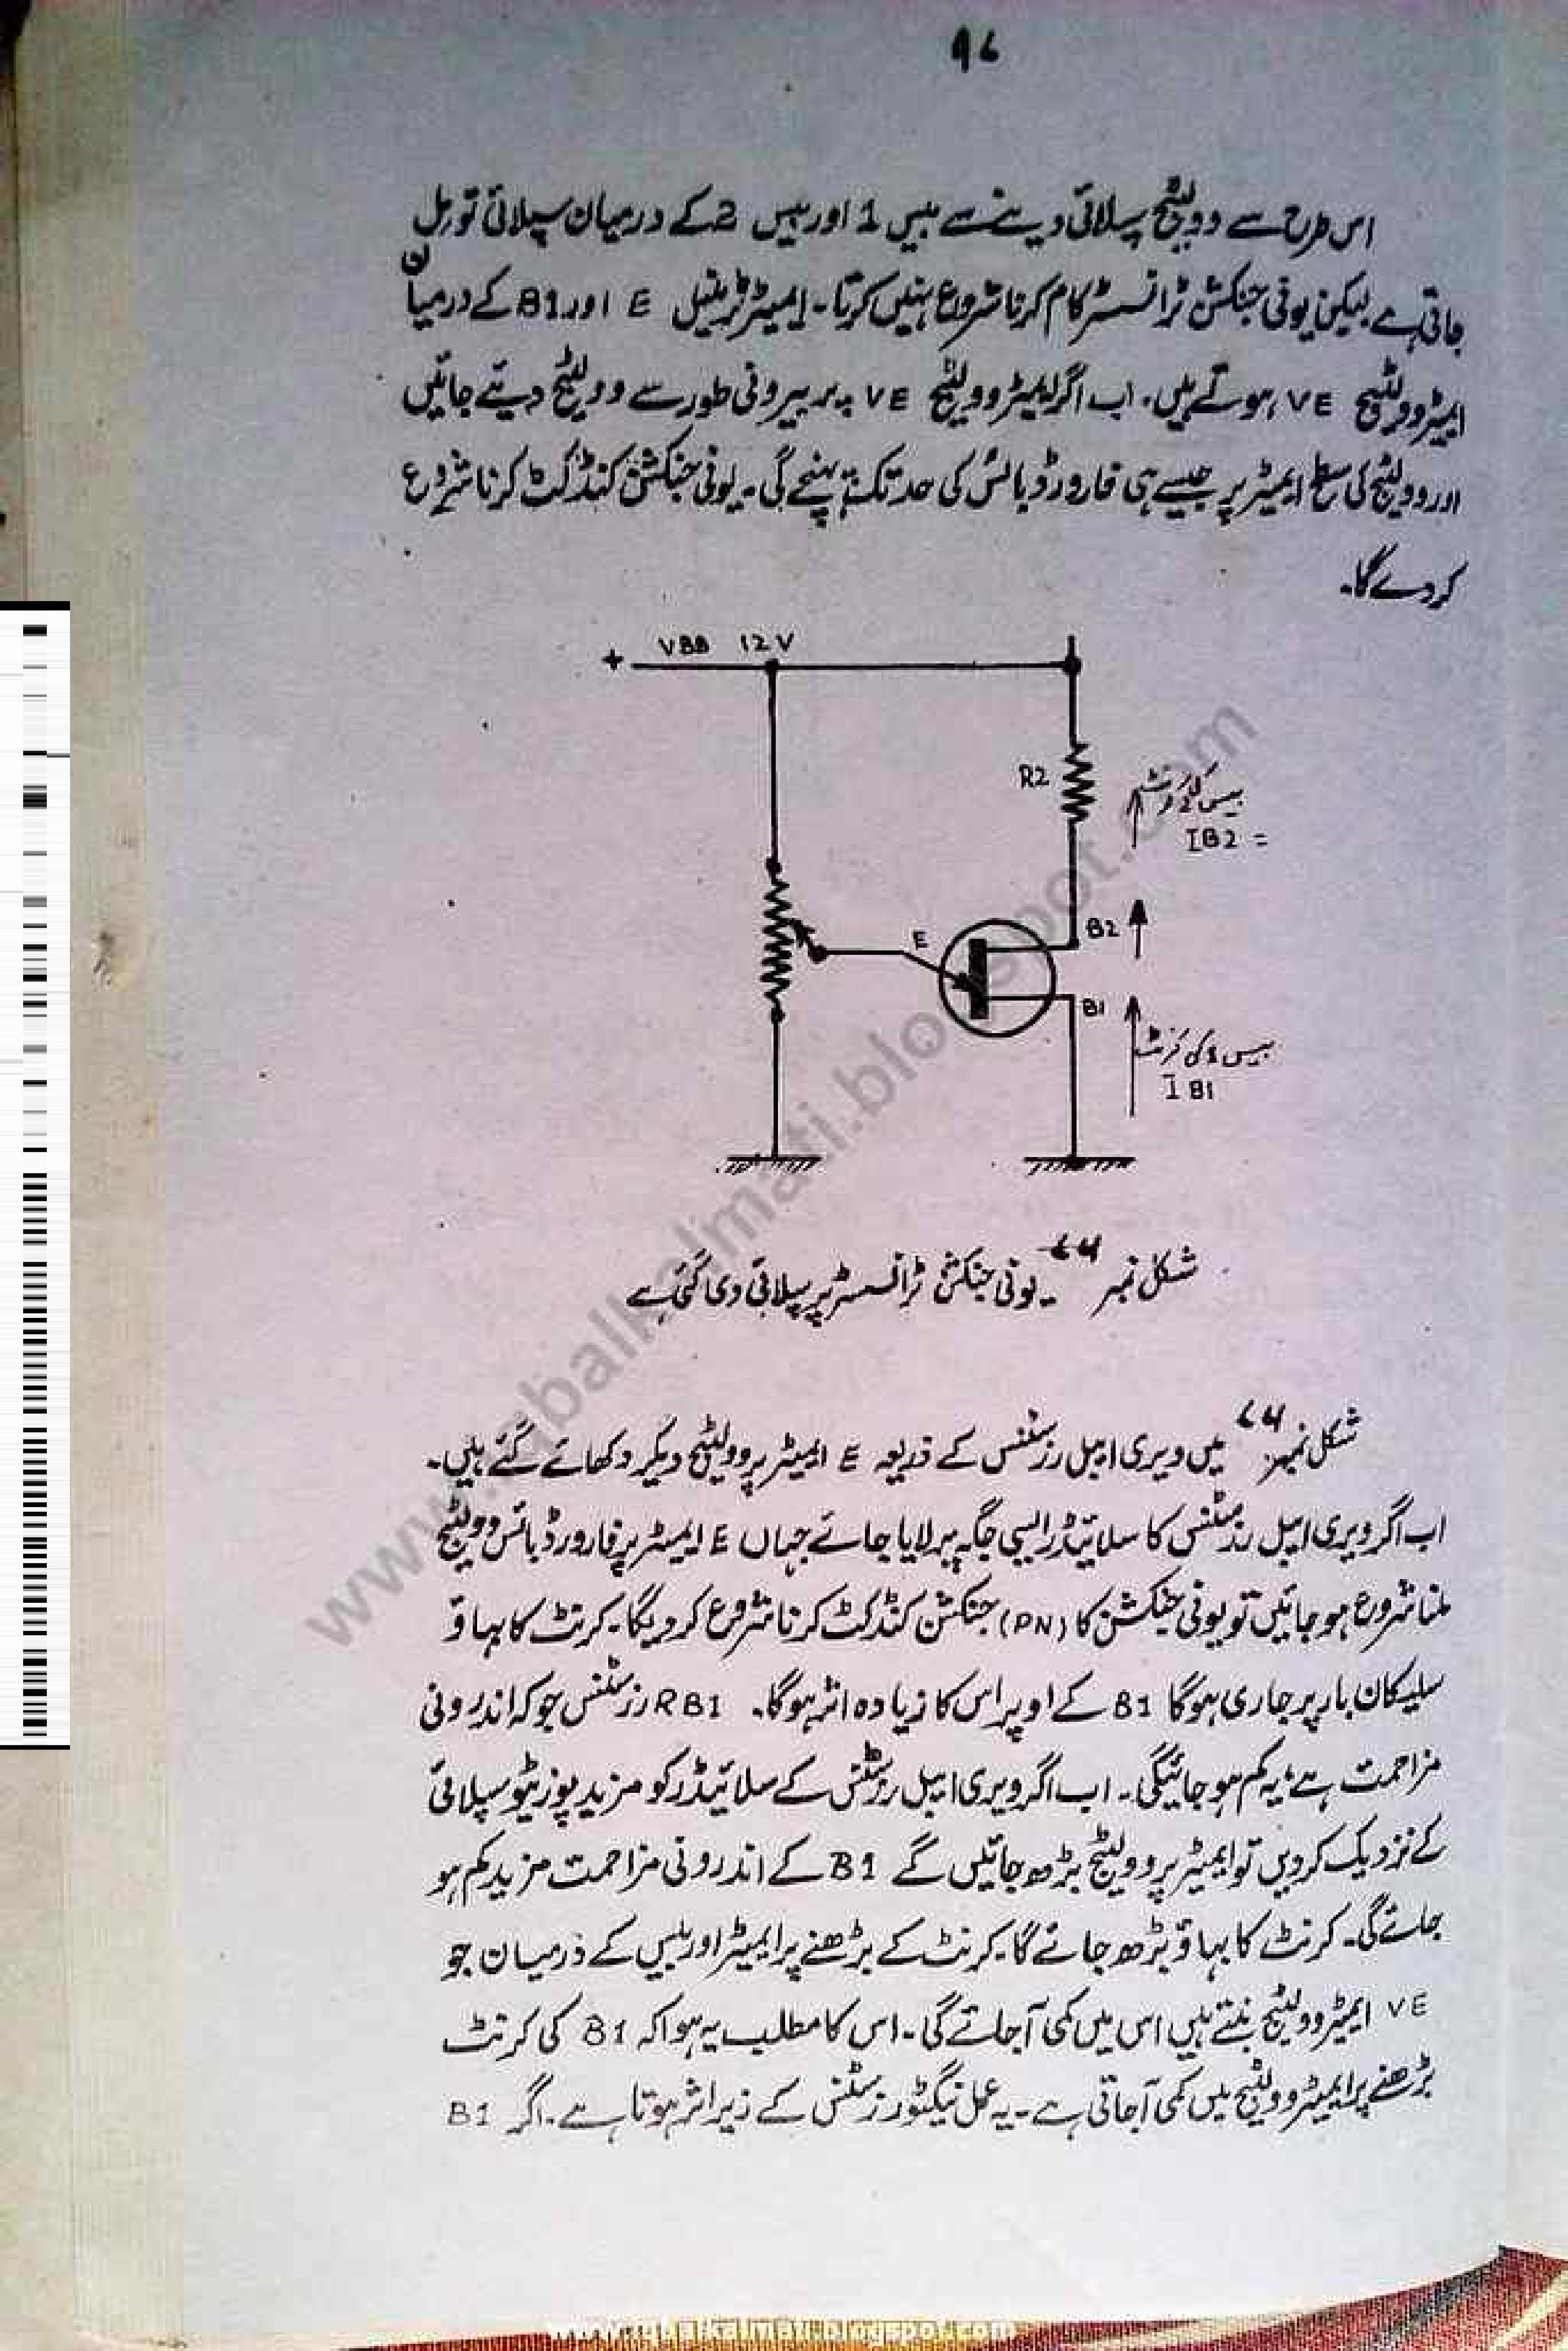 ۹۶
اس طرح سے وولٹیج سپلائی دینے سے بیس 1 اور بیس 2 کے درمیان سپلائی تو مل
جاتی ہے لیکن یونی جنکشن ٹرانسسٹر کام کرنا شروع نہیں کرتا۔ ایمیٹر ٹرمینل E اور B1 کے درمیان
ایمیٹر وولٹیج VE ہوتے ہیں۔ اب اگر ایمیٹر وولٹیج VE پر بیرونی طور سے وولٹیج دیئے جائیں
اور وولٹیج کی سطح ایمیٹر پر جیسے ہی فارورڈ بائس کی حد تک پہنچے گی۔ یونی جنکشن کنڈکٹ کرنا شروع
کر دے گا۔
+ VBB 12V
R2
بیس کرنٹ
IB2 =
E
B2
B1
بیس 1 کی کرنٹ
IB1
شکل نمبر ۶۴۔ یونی جنکشن ٹرانسسٹر پر سپلائی دی گئی ہے
شکل نمبر ۶۴ میں ویری ایبل رزسٹنس کے ذریعہ E ایمیٹر پر وولٹیج دیکر دکھائے گئے ہیں۔
اب اگر ویری ایبل رزسٹنس کا سلائیڈر ایسی جگہ پر لایا جائے جہاں E ایمیٹر پر فارورڈ بائس وولٹیج
ملنا شروع ہو جائیں تو یونی جنکشن کا (PN) جنکشن کنڈکٹ کرنا شروع کر دیگا۔ کرنٹ کا بہاؤ
سلیکان بار پر جاری ہوگا B1 کے اوپر اس کا زیادہ اثر ہوگا۔ RB1 رزسٹنس جو کہ اندرونی
مزاحمت ہے، یہ کم ہو جائیگی۔ اب اگر ویری ایبل رزسٹنس کے سلائیڈر کو مزید پوزیٹو سپلائی
کے نزدیک کر دیں تو ایمیٹر پر وولٹیج بڑھ جائیں گے B1 کے اندرونی مزاحمت مزید کم ہو
جائے گی۔ کرنٹ کا بہاؤ بڑھ جائے گا۔ کرنٹ کے بڑھنے پر ایمیٹر اور بیس کے درمیان جو
VE ایمیٹر وولٹیج بنتے ہیں اس میں کمی آجائے گی۔ اس کا مطلب یہ ہوا کہ B1 کی کرنٹ
بڑھنے پر ایمیٹر وولٹیج میں کمی آجاتی ہے۔ یہ عمل نیگٹو رزسٹنس کے زیر اثر ہوتا ہے۔ اگر B1
www.iqbalkalmati.blogspot.com
www.iqbalkalmati.blogspot.com